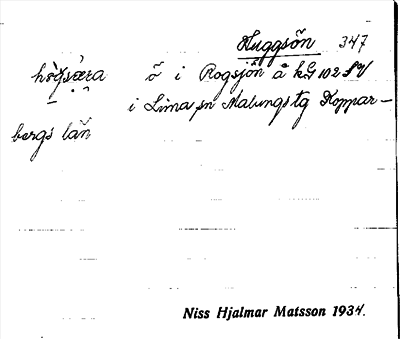 Huggsön 347
ö i Rogsjön å kg 102 SV
i Lima sn Malungs tg Koppar-
bergs län
Niss Hjalmar Matsson 1934.